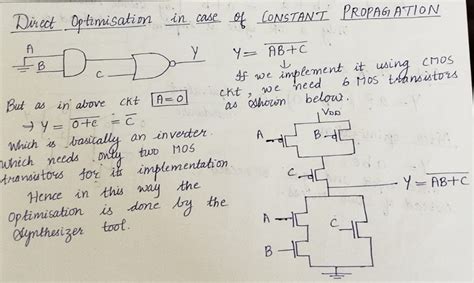 Direct Optimisation in case of CONSTANT PROPAGATION
A
B
C
Y
Y = \overline{AB+C}
↓
If we implement it using CMOS
ckt, we need 6 MOS transistors
as shown below.
But as in above ckt A=0
→ Y = \overline{0+c} = \overline{C}
which is basically an inverter
which needs only two MOS
transistors for its implementation
Hence in this way the
Optimisation is done by the
Synthesizer tool.
VDD
A
B
C
Y = \overline{AB+C}
A
C
B